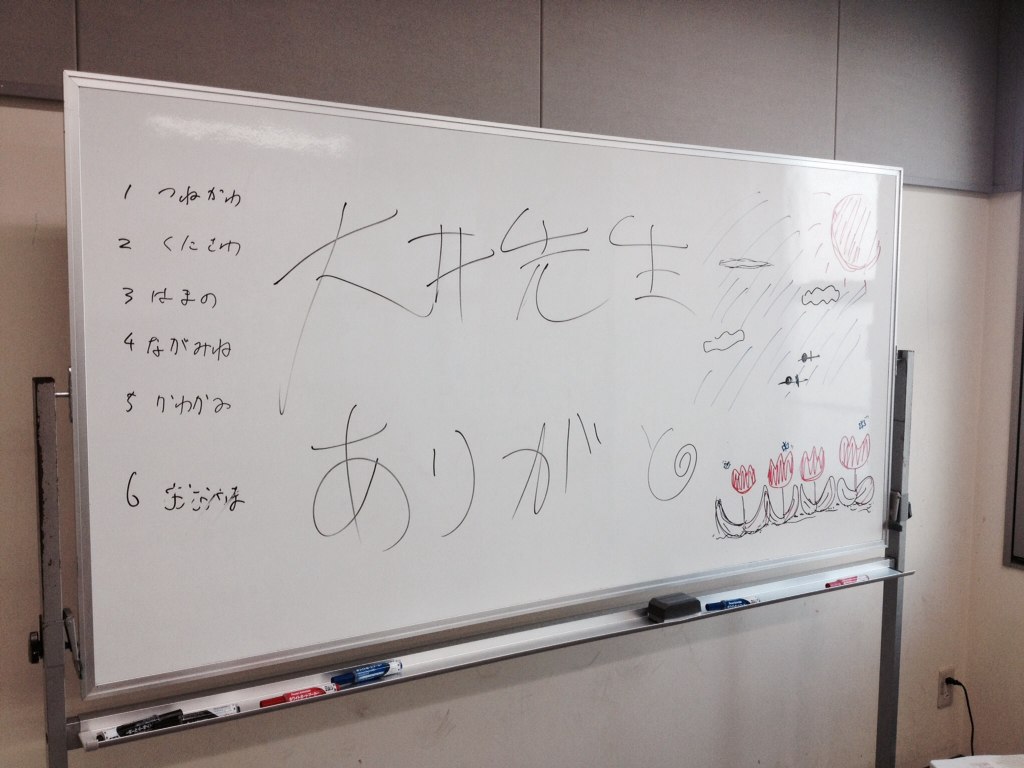 1 つねかわ
2 くにさわ
3 はまの
4 ながみね
5 かわかみ
6
大井先生
ありがと